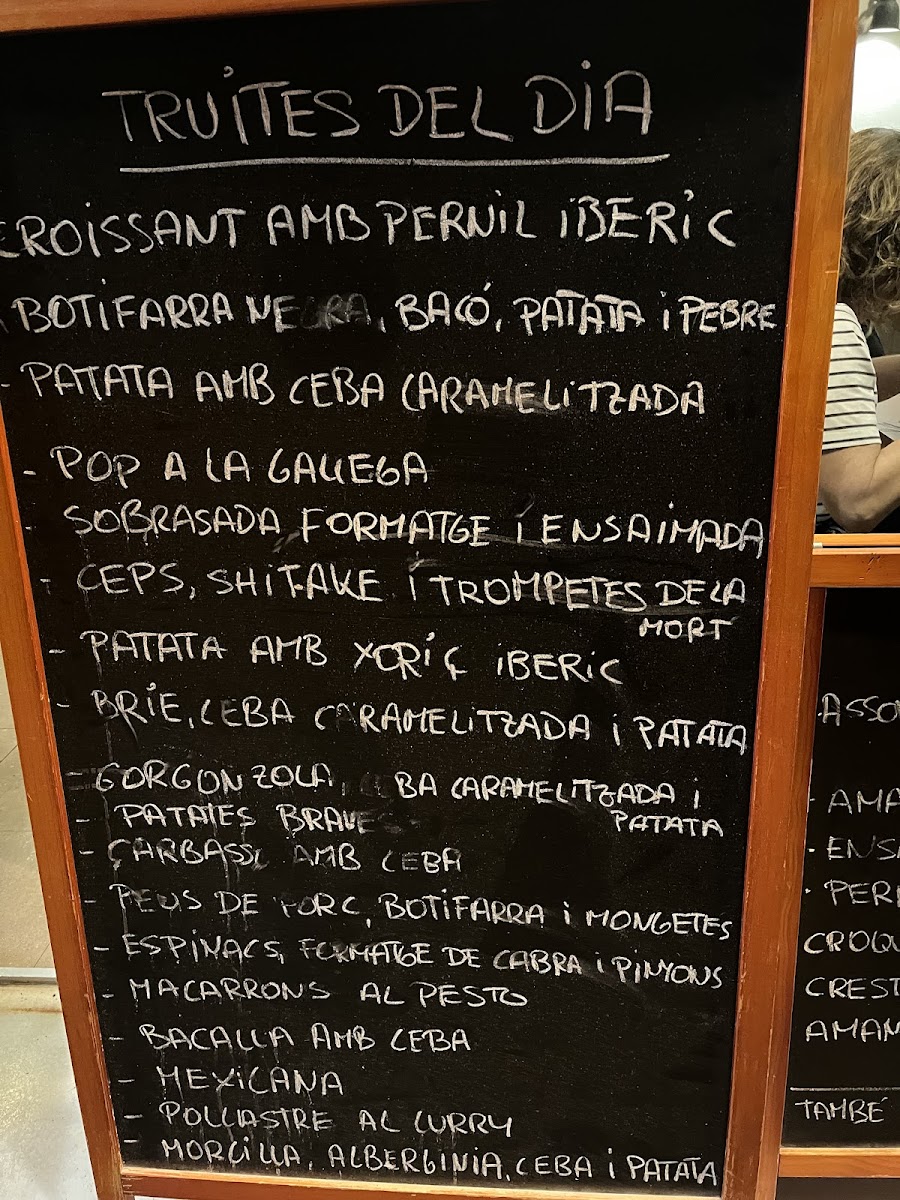 TRUITES DEL DIA
CROISSANT AMB PERNIL IBERIC
BOTIFARRA NEGRA, BACÓ, PATATA I PEBRE
- PATATA AMB CEBA CARAMELITZADA
- POP A LA GALLEGA
- SOBRASADA FORMATGE I ENSAIMADA
- CEPS, SHITAKE I TROMPETES DE LA
MORT
- PATATA AMB XORIÇ IBERIC
- BRIE, CEBA CARAMELITZADA I PATATA
- GORGONZOLA, CEBA CARAMELITZADA I
PATATA
- PATATES BRAVES
- CARBASSÓ AMB CEBA
- PEUS DE PORC, BOTIFARRA I MONGETES
- ESPINACS, FORMATGE DE CABRA I PINYONS
- MACARRONS AL PESTO
- BACALLA AMB CEBA
- MEXICANA
- POLLASTRE AL CURRY
- MORCILLA, ALBERGINIA, CEBA I PATATA
ASSO
- AMA
- ENSA
- PERN
CROQU
CREST
AMAN
TAMBÉ